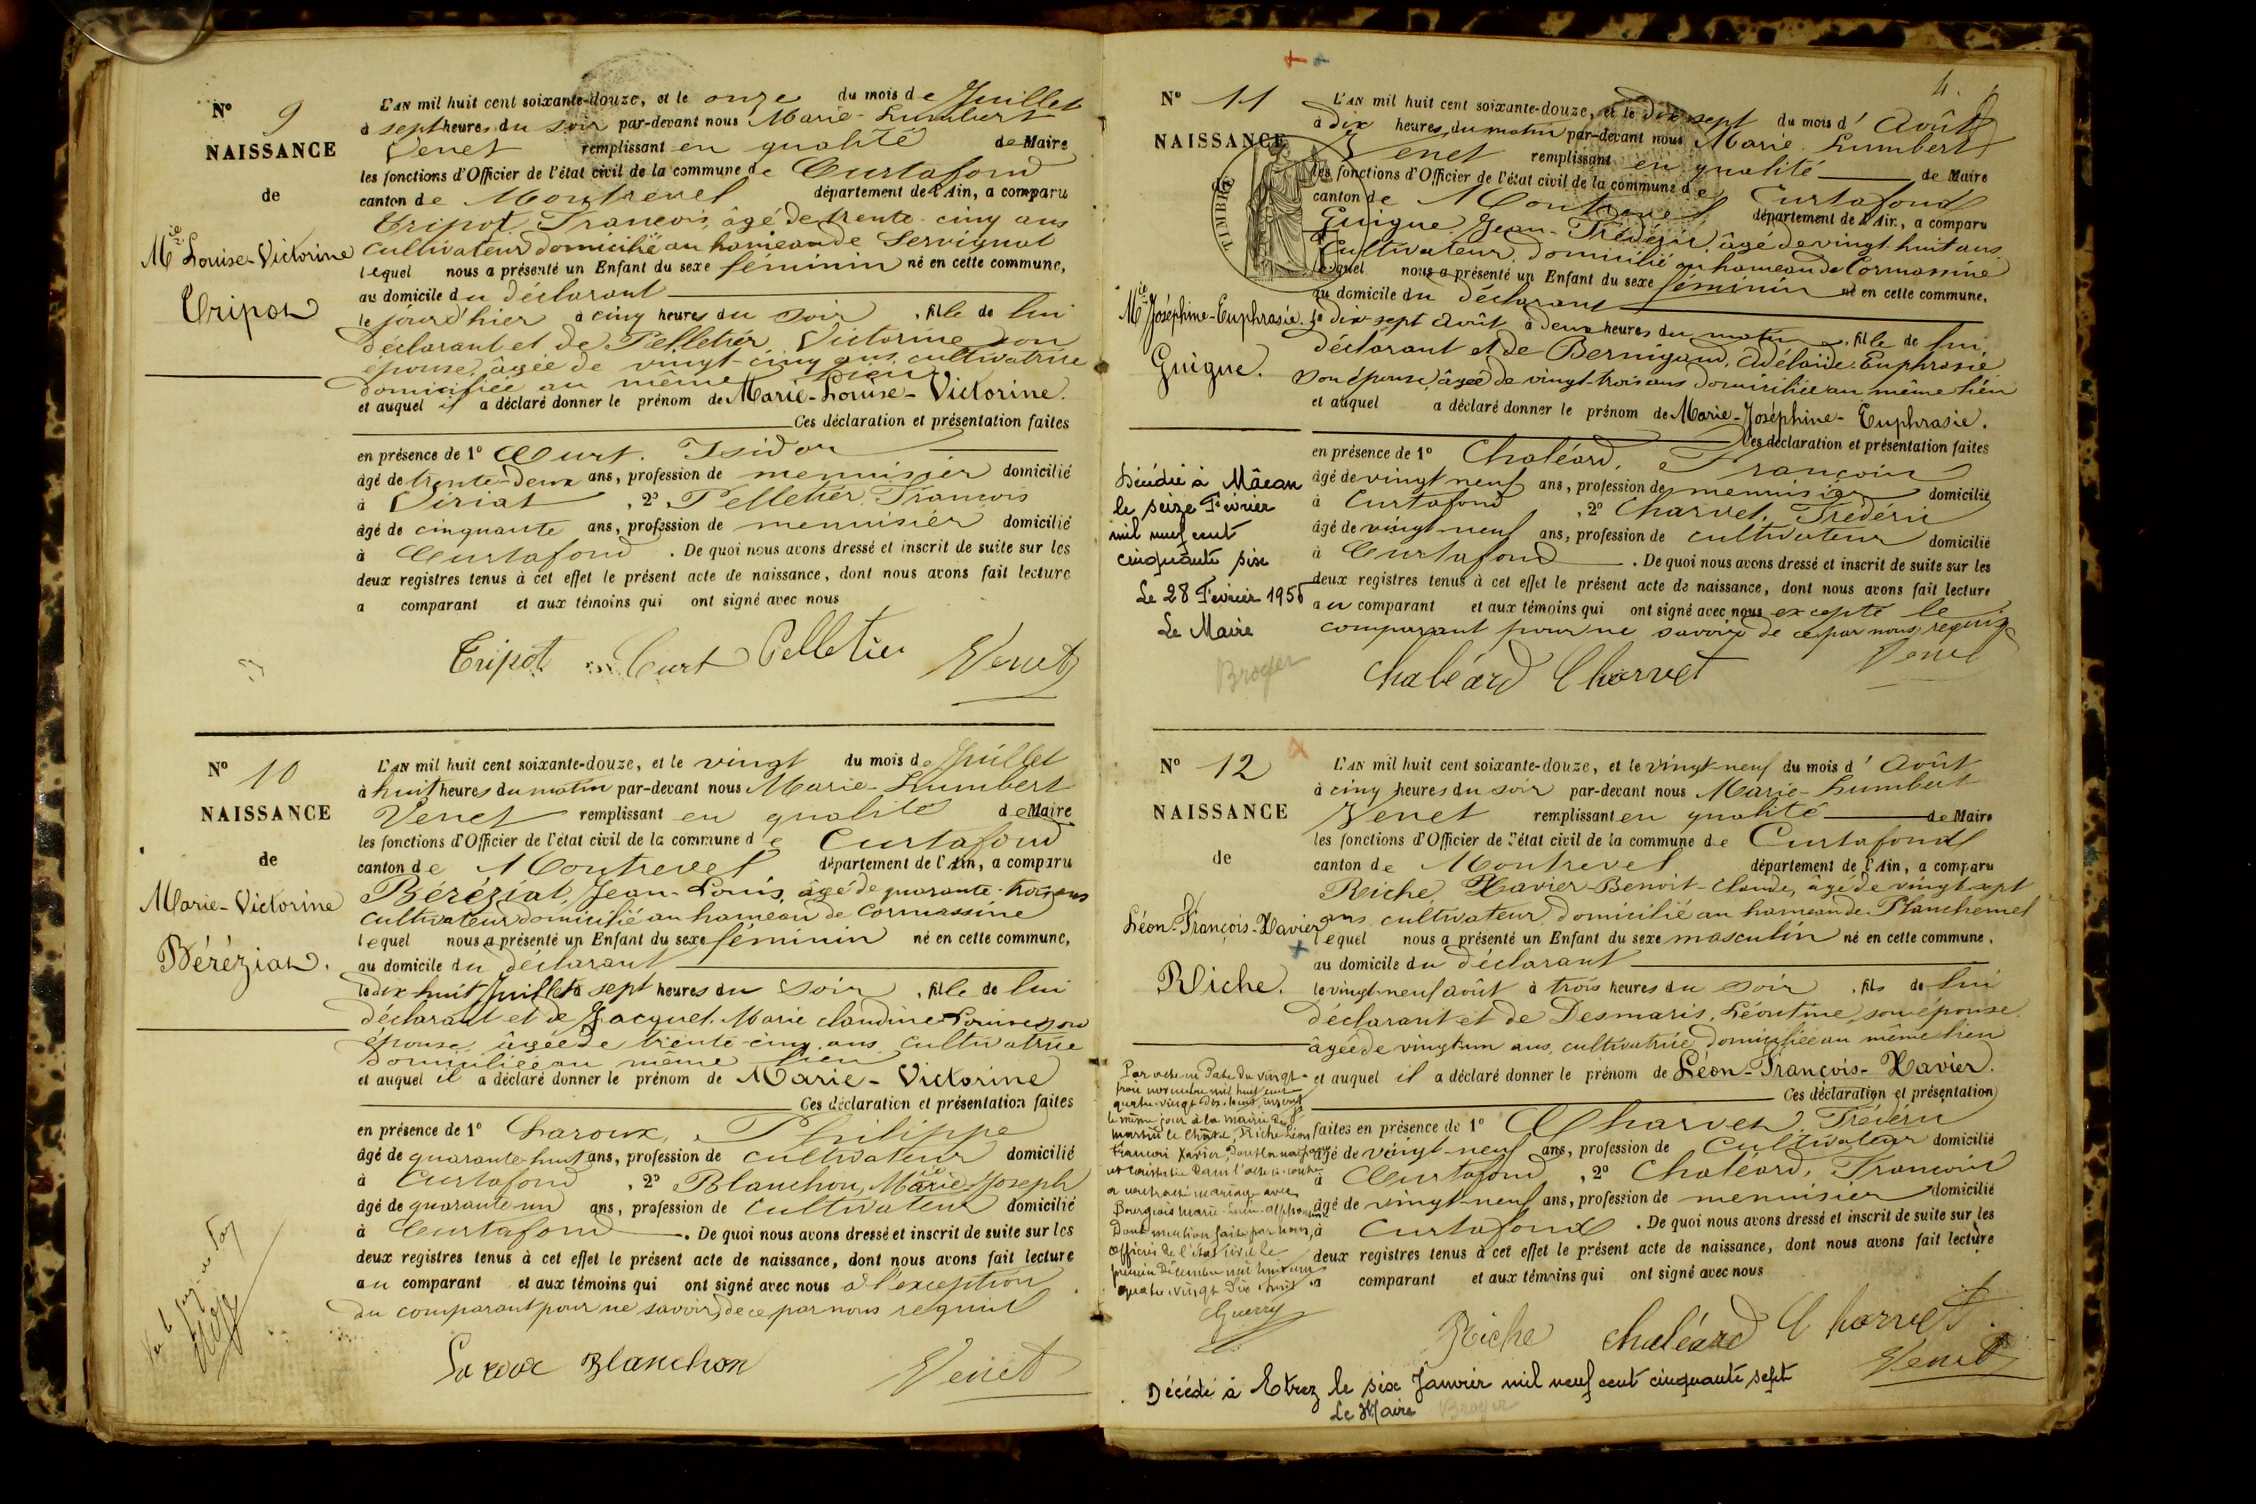 N° 9
NAISSANCE
de
Mie Louise-Victorine
Tripoz
L'AN mil huit cent soixante-douze, et le onze du mois de Juillet
à sept heures du soir par-devant nous Marie-Humbert
Venet remplissant en qualité de Maire
les fonctions d'Officier de l'état civil de la commune de Curtafond
canton de Montrevel département de l'Ain, a comparu
Tripot, François, âgé de trente-cinq ans
cultivateur domicilié au hameau de Servignat
lequel nous a présenté un Enfant du sexe féminin né en cette commune,
au domicile du déclarant
le jour d'hier à cinq heures du soir, fille de lui
déclarant et de Pelletier Victorine son
épouse, âgée de vingt-cinq ans cultivatrice
domiciliée au même lieu
et auquel il a déclaré donner le prénom de Marie-Louise-Victorine.
Ces déclaration et présentation faites
en présence de 1° Curt. Isidor
âgé de trente-deux ans, profession de menuisier domicilié
à Viriat, 2° Pelletier François
âgé de cinquante ans, profession de menuisier domicilié
à Curtafond. De quoi nous avons dressé et inscrit de suite sur les
deux registres tenus à cet effet le présent acte de naissance, dont nous avons fait lecture
a comparant et aux témoins qui ont signé avec nous
Tripot Curt Pelletier Venet
N° 10
NAISSANCE
de
Marie-Victorine
Béréziat.
L'AN mil huit cent soixante-douze, et le vingt du mois de Juillet
à huit heures du matin par-devant nous Marie-Humbert
Venet remplissant en qualité de Maire
les fonctions d'Officier de l'état civil de la commune de Curtafond
canton de Montrevel département de l'Ain, a comparu
Béréziat, Jean-Louis, âgé de quarante-trois ans
cultivateur domicilié au hameau de Cormassine
lequel nous a présenté un Enfant du sexe féminin né en cette commune,
au domicile du déclarant
le dix huit Juillet à sept heures du soir, fille de lui
déclarant et de Jacquet. Marie Claudine Louise son
épouse, âgée de trente-cinq ans cultivatrice
domiciliée au même lieu
et auquel il a déclaré donner le prénom de Marie-Victorine
Ces déclaration et présentation faites
en présence de 1° Laroux, Philippe
âgé de quarante-huit ans, profession de cultivateur domicilié
à Curtafond, 2° Blanchon, Marie Joseph
âgé de quarante un ans, profession de cultivateur domicilié
à Curtafond. De quoi nous avons dressé et inscrit de suite sur les
deux registres tenus à cet effet le présent acte de naissance, dont nous avons fait lecture
au comparant et aux témoins qui ont signé avec nous à l'exception
du comparant pour ne savoir, de ce par nous requis
Laroux Blanchon Venet
4.
N° 11
NAISSANCE
TIMBRE
Mie Joséphine-Euphrasie.
Guigue.
L'AN mil huit cent soixante-douze, et le dix sept du mois d'Août
à dix heures du matin par-devant nous Marie Humbert
Venet remplissant en qualité de Maire
les fonctions d'Officier de l'état civil de la commune de Curtafond
canton de Montrevel département de l'Ain, a comparu
Guigue, Jean-Frédéric, âgé de vingt huit ans
cultivateur, domicilié au hameau de Cormassine
lequel nous a présenté un Enfant du sexe féminin né en cette commune,
au domicile du déclarant
le dix-sept Août à deux heures du matin, fille de lui
déclarant et de Bernigaud, Adélaïde Euphrasie
son épouse, âgée de vingt-trois ans domiciliée au même lieu
et auquel a déclaré donner le prénom de Marie-Joséphine-Euphrasie.
Ces déclaration et présentation faites
en présence de 1° Chaléard, François
âgé de vingt neuf ans, profession de menuisier domicilié
à Curtafond, 2° Charvet, Frédéric
âgé de vingt-neuf ans, profession de cultivateur domicilié
à Curtafond. De quoi nous avons dressé et inscrit de suite sur les
deux registres tenus à cet effet le présent acte de naissance, dont nous avons fait lecture
au comparant et aux témoins qui ont signé avec nous excepté le
comparant pour ne savoir de ce par nous requis
Chaléard Charvet Venet
Décédée à Mâcon
le seize Février
mil neuf cent
cinquante six
Le 28 Février 1956
Le Maire
Broyer
N° 12
NAISSANCE
de
Léon-François-Xavier
Riche.
L'AN mil huit cent soixante-douze, et le vingt-neuf du mois d'Août
à cinq heures du soir par-devant nous Marie-Humbert
Venet remplissant en qualité de Maire
les fonctions d'Officier de l'état civil de la commune de Curtafond
canton de Montrevel département de l'Ain, a comparu
Riche, Xavier-Benoit-Claude, âgé de vingt sept
ans, cultivateur, domicilié au hameau de Planchemel
lequel nous a présenté un Enfant du sexe masculin né en cette commune,
au domicile du déclarant
le vingt-neuf août à trois heures du soir, fils de lui
déclarant et de Desmaris, Léontine, son épouse
âgée de vingt un ans, cultivatrice, domiciliée au même lieu
et auquel il a déclaré donner le prénom de Léon-François-Xavier.
Ces déclaration et présentation
faites en présence de 1° Charvet, Frédéric
âgé de vingt-neuf ans, profession de cultivateur domicilié
à Curtafond, 2° Chaléard, François
âgé de vingt-neuf ans, profession de menuisier domicilié
à Curtafond. De quoi nous avons dressé et inscrit de suite sur les
deux registres tenus à cet effet le présent acte de naissance, dont nous avons fait lecture
a comparant et aux témoins qui ont signé avec nous
Riche Chaléard Charvet
Venet
Par acte en date du vingt-
trois novembre mil huit cent
quatre-vingt dix-huit, inscrit
le même jour à la mairie de
Martin le Chatel, Riche Léon
François Xavier, dont la naissance
est constatée dans l'acte ci-contre
a contracté mariage avec
Bourgeois Marie
Dont mention faite par nous,
officier de l'état civil le
premier Décembre mil huit cent
quatre-vingt dix-huit
Guerry
Décédé à Etrez le six Janvier mil neuf cent cinquante sept
Le Maire Broyer